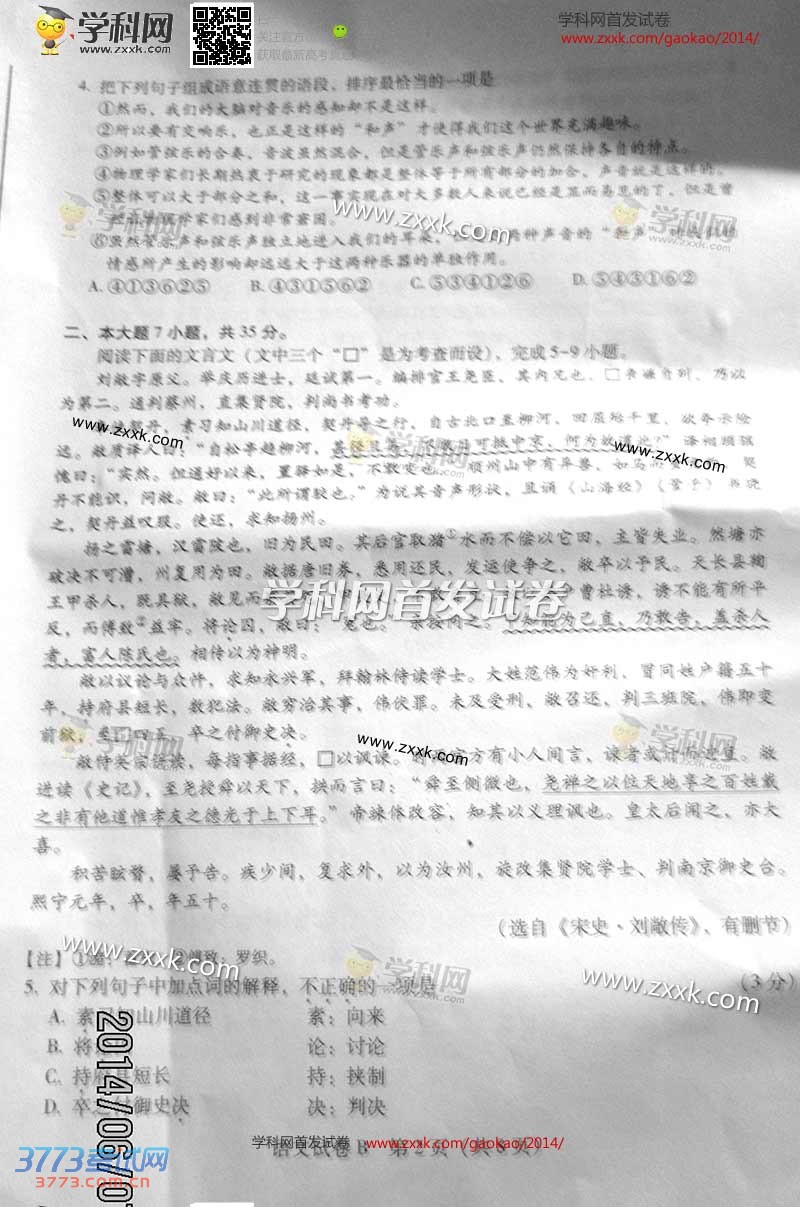 学科网
www.zxxk.com
关注官方
获取最新高考真题
学科网首发试卷
www.zxxk.com/gaokao/2014/
4. 把下列句子组成语意连贯的语段，排序最恰当的一项是
①然而，我们的大脑对音乐的感知却不是这样。
②所以要有交响乐，也正是这样的“和声”才使得我们这个世界充满趣味。
③例如管弦乐的合奏，音波虽然混合，但是管乐声和弦乐声仍然保持各自的特点。
④物理学家们长期热衷于研究的现象都是整体等于所有部分的加合，声音就是这样的。
⑤整体可以大于部分之和，这一事实现在对大多数人来说已经是显而易见的了，但是曾
物理学家们感到非常困
www.zxxk.com
学科网
⑥虽然管乐声和弦乐声独立地进入我们的耳朵，种声音的
情感所产生的影响却远远大于这两种乐器的单独作用。
A. ④①③⑥②⑤ B. ④③①⑤⑥② C. ⑤③④①②⑥ D. ⑤④③①⑥②
二、本大题7小题，共35分。
阅读下面的文言文（文中三个“□”是为考查而设），完成5-9小题。
刘敞字原父。举庆历进士，廷试第一。编排官王尧臣，其内兄也，□
为第二。通判蔡州，直集贤院，判尚书考功。
契丹，素习知山川道径，契丹导之行，自古北口至柳河，回屈殆千里，欲夸示险
www.zxxk.com
远。敞质译人曰：“自松亭趋柳河，
可抵中京，何为故道此？”译相顾骇
www.zxxk.com
学科网
愧曰：“实然。但通好以来，置驿如是，不敢变也。”顺州山中有异兽，如马而
契
丹不能识，问敞。敞曰：“此所谓駮也。”为说其音声形状，且诵《山海经》《管子》书晓
之，契丹益叹服。使还，求知扬州。
扬之雷塘，汉雷陂也，旧为民田。其后官取潴①水而不偿以它田，主皆失业。然塘亦
破决不可漕，州复用为田。敞据唐旧券，悉用还民，发运使争之，敞卒以予民。天长县鞫
王甲杀人，既具狱，敞见而
学科网首发试卷
曾杜诱，诱不能有所平
反，而傅致②益牢。将论囚，敞曰：“冤也。”亲按问之。甲知能为己直，乃敢告，盖杀人
者，富人陈氏也。相传以为神明。
敞以议论与众忤，求知永兴军，拜翰林侍读学士。大姓范伟为奸利，冒同姓户籍五十
年，持府县短长，数犯法。敞穷治其事，伟伏罪。未及受刑，敞召还，判三班院，伟即变
前狱，至□四五，卒之付御史决。
www.zxxk.com
学科网
敞侍英宗讲读，每指事据经，□以讽谏。时两宫方有小人间言，谏者或讦而过直。敞
进读《史记》，至尧授舜以天下，拱而言曰：“舜至侧微也，尧禅之以位天地享之百姓戴
之非有他道惟孝友之德光于上下耳。”帝竦体改容，知其以义理讽也。皇太后闻之，亦大
喜。
积苦眩瞀，屡予告。疾少间，复求外，以为汝州，旋改集贤院学士、判南京御史台。
熙宁元年，卒，年五十。
（选自《宋史·刘敞传》，有删节）
www.zxxk.com
【注】①潴：
②傅致：罗织。
学科网
www.zxxk.com
5. 对下列句子中加点词的解释，不正确的一项是 （3分）
A. 素习知山川道径 素：向来
B. 将 论：讨论
C. 持府县短长 持：挟制
D. 卒之付御史决 决：判决
2014/06/0
3773考试网
3773.com.cn
学科网首发试卷 www.zxxk.com/gaokao/2014/
语文试卷B 第2页（共8页）